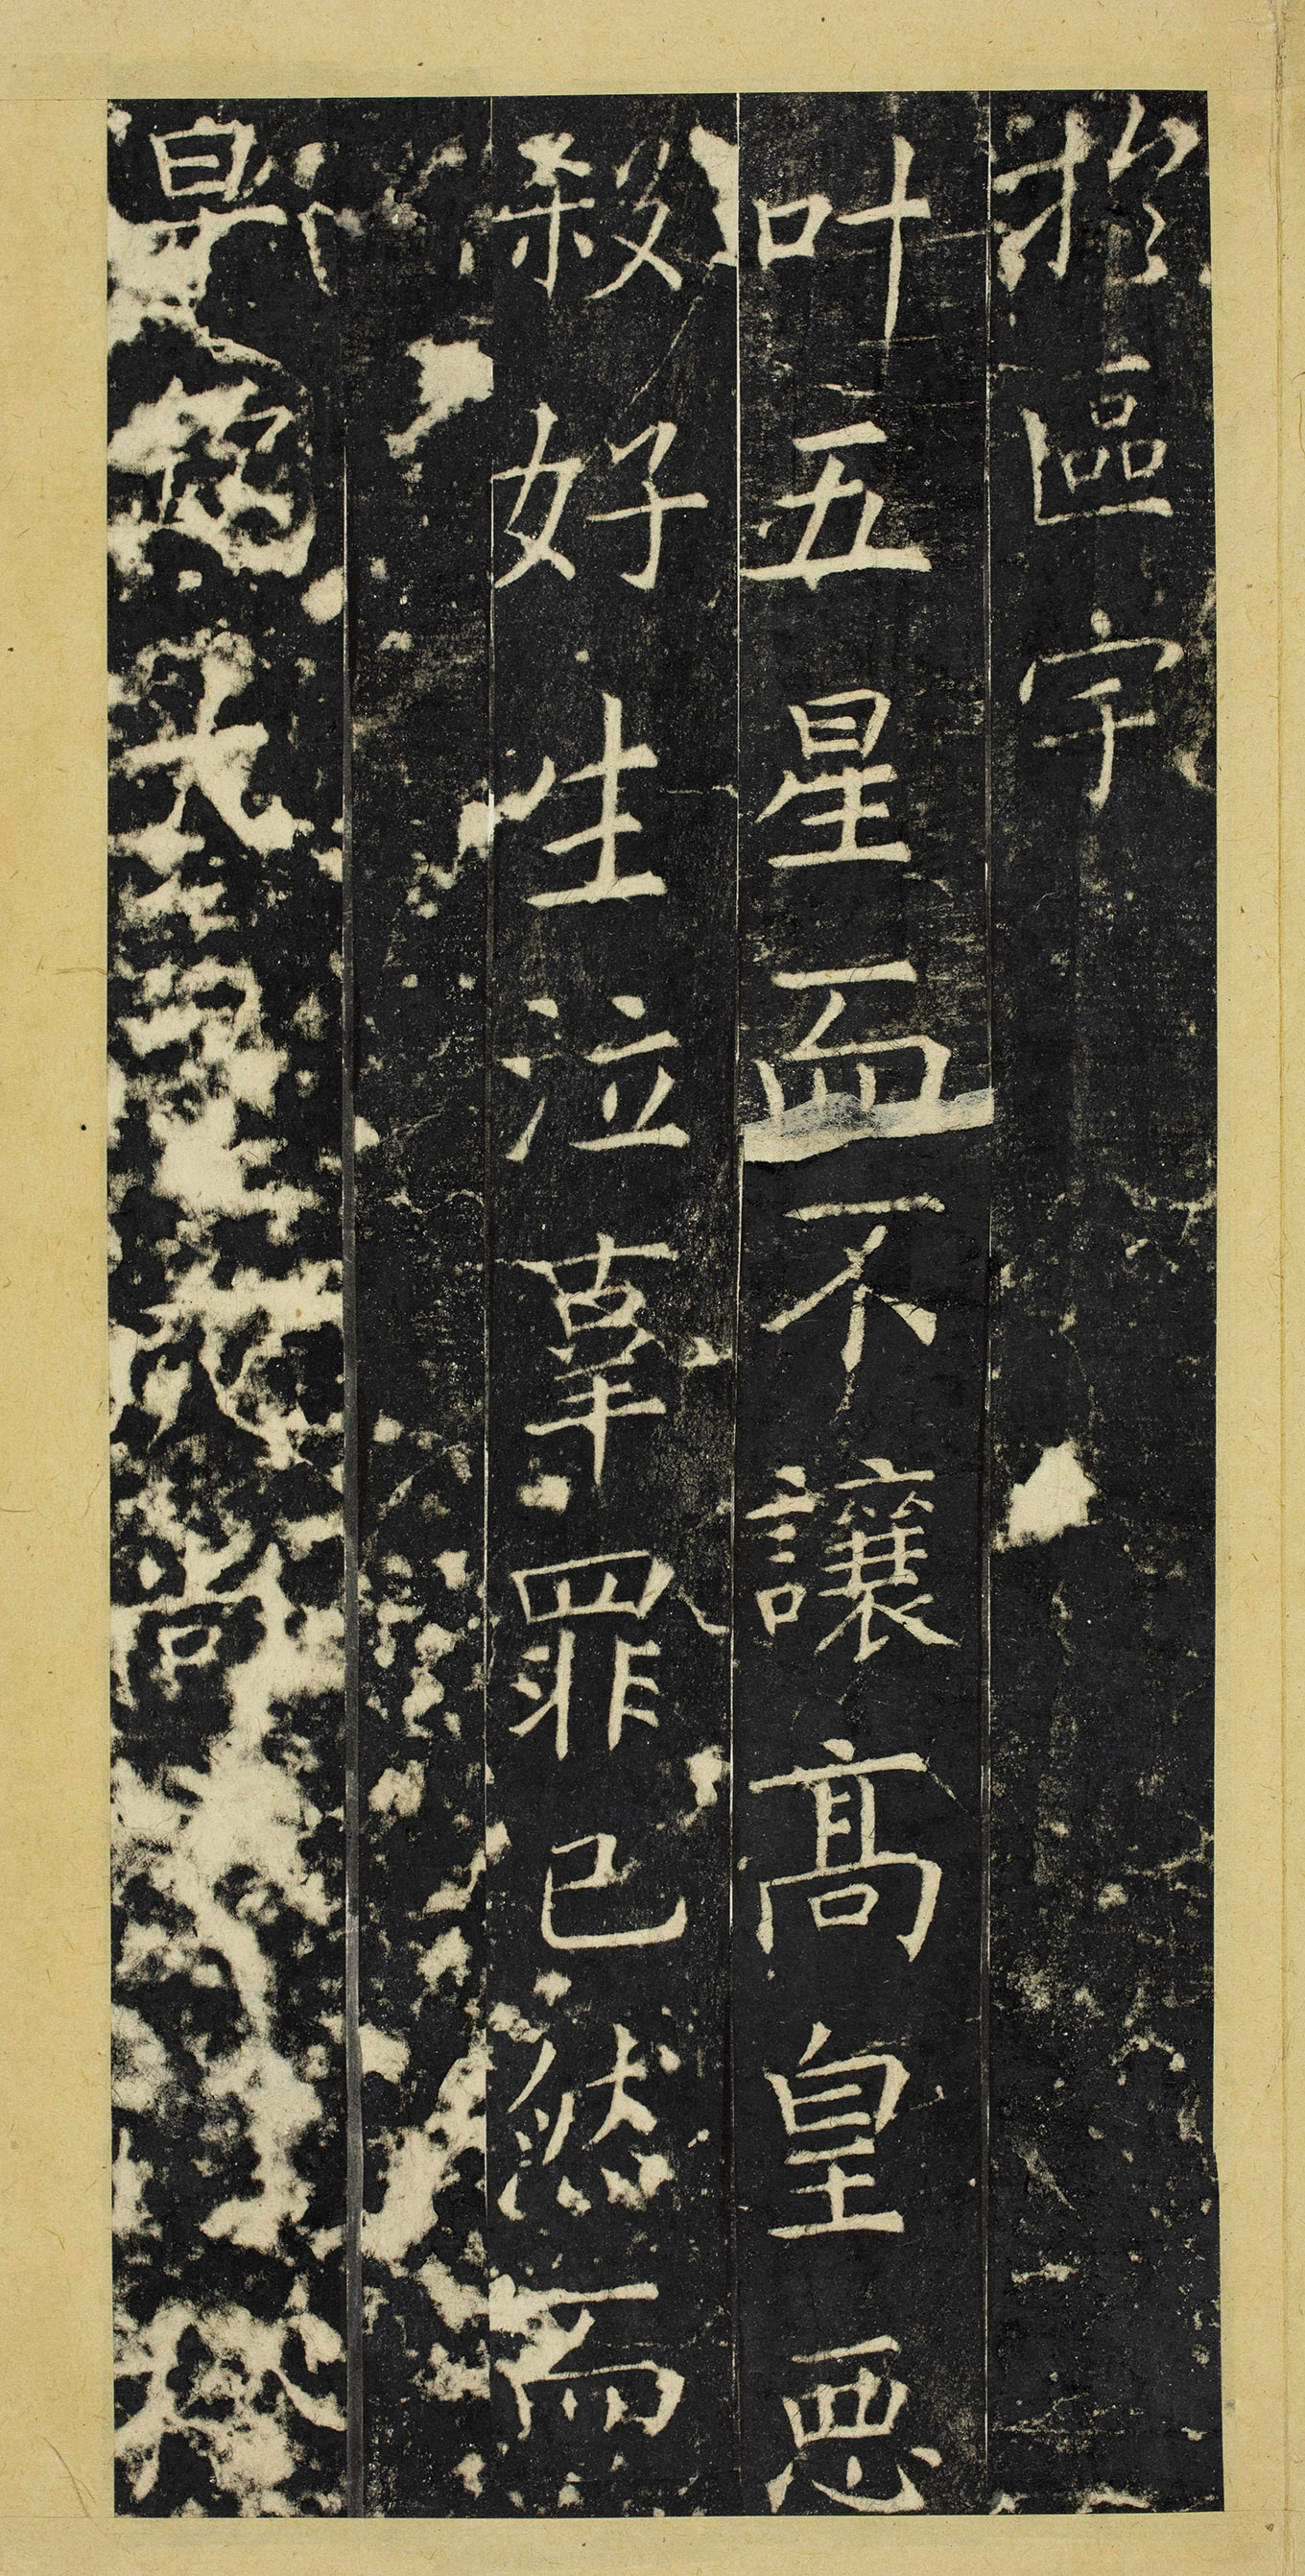 於區宇
叶五星而不讓高皇惡
殺好生泣辜罪已然而
皐
大
尚